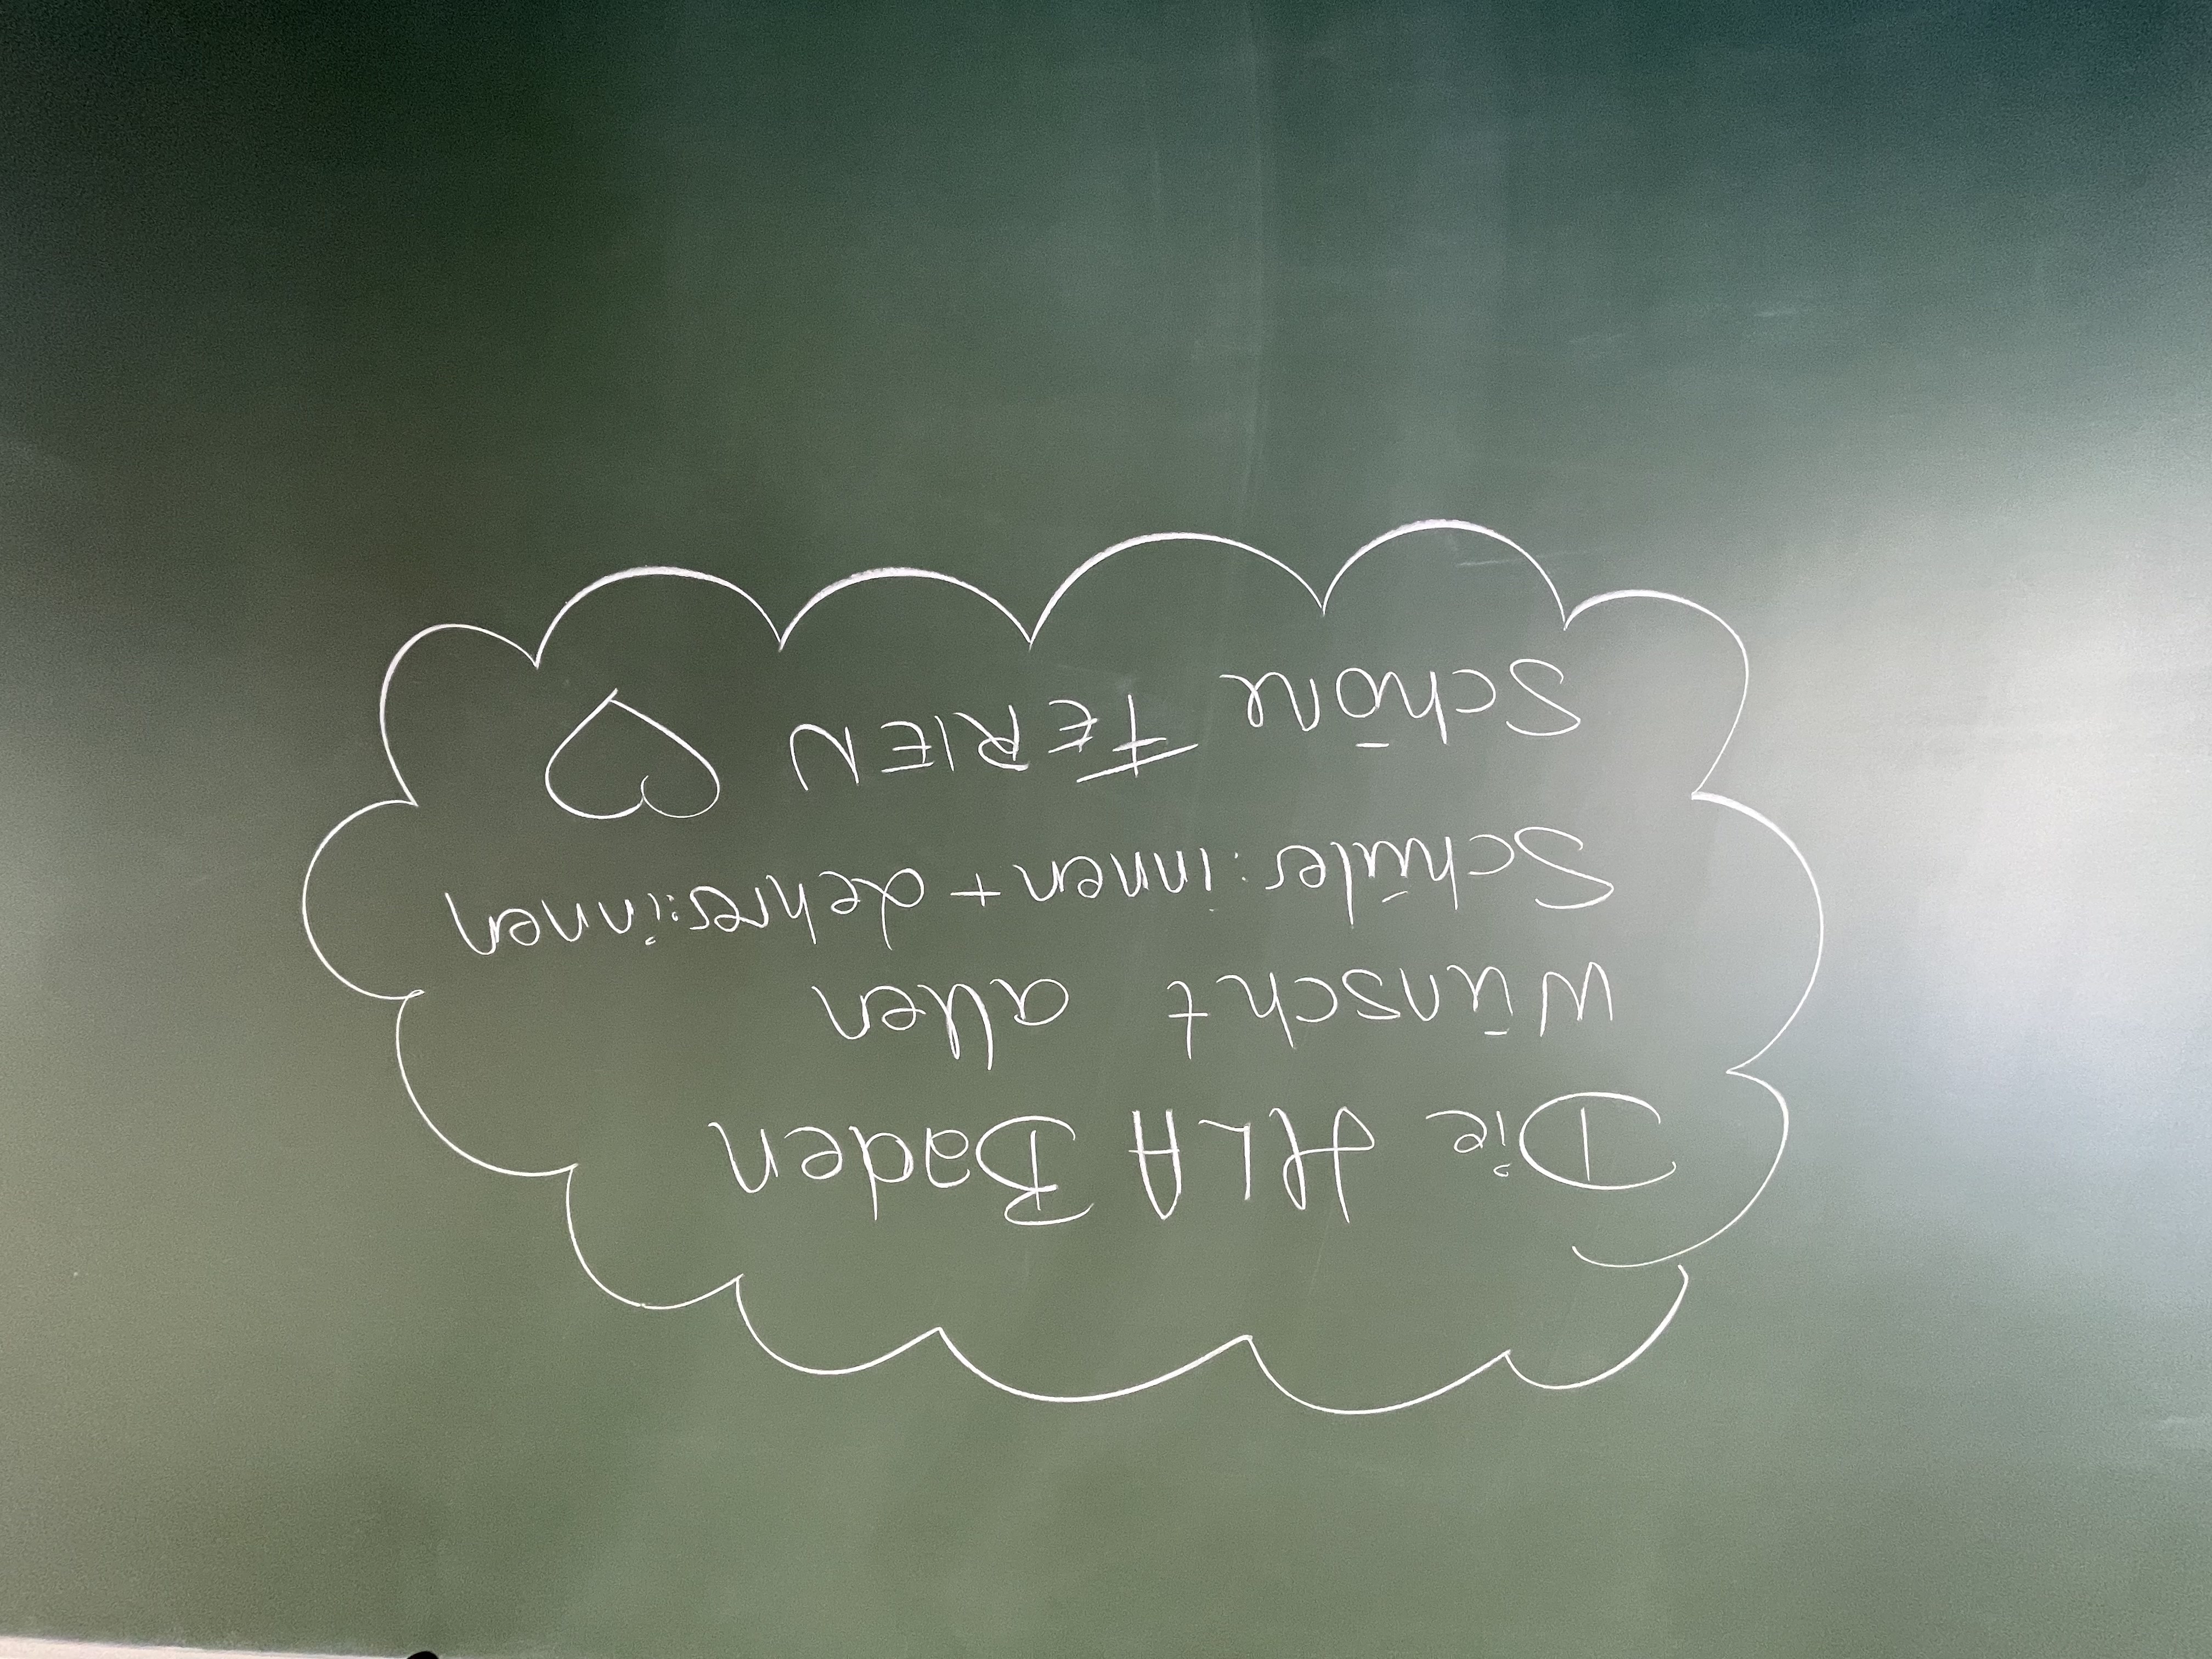 Die HLA Baden
wünscht allen
Schüler:innen + Lehrer:innen
Schöne FERIEN